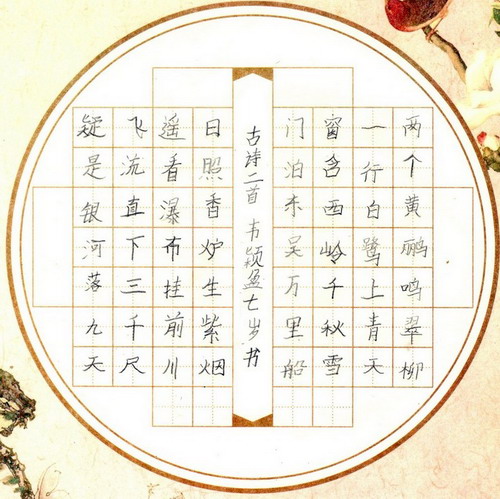 两个黄鹂鸣翠柳
一行白鹭上青天
窗含西岭千秋雪
门泊东吴万里船
古诗二首 韦颖盈七岁书
日照香炉生紫烟
遥看瀑布挂前川
飞流直下三千尺
疑是银河落九天